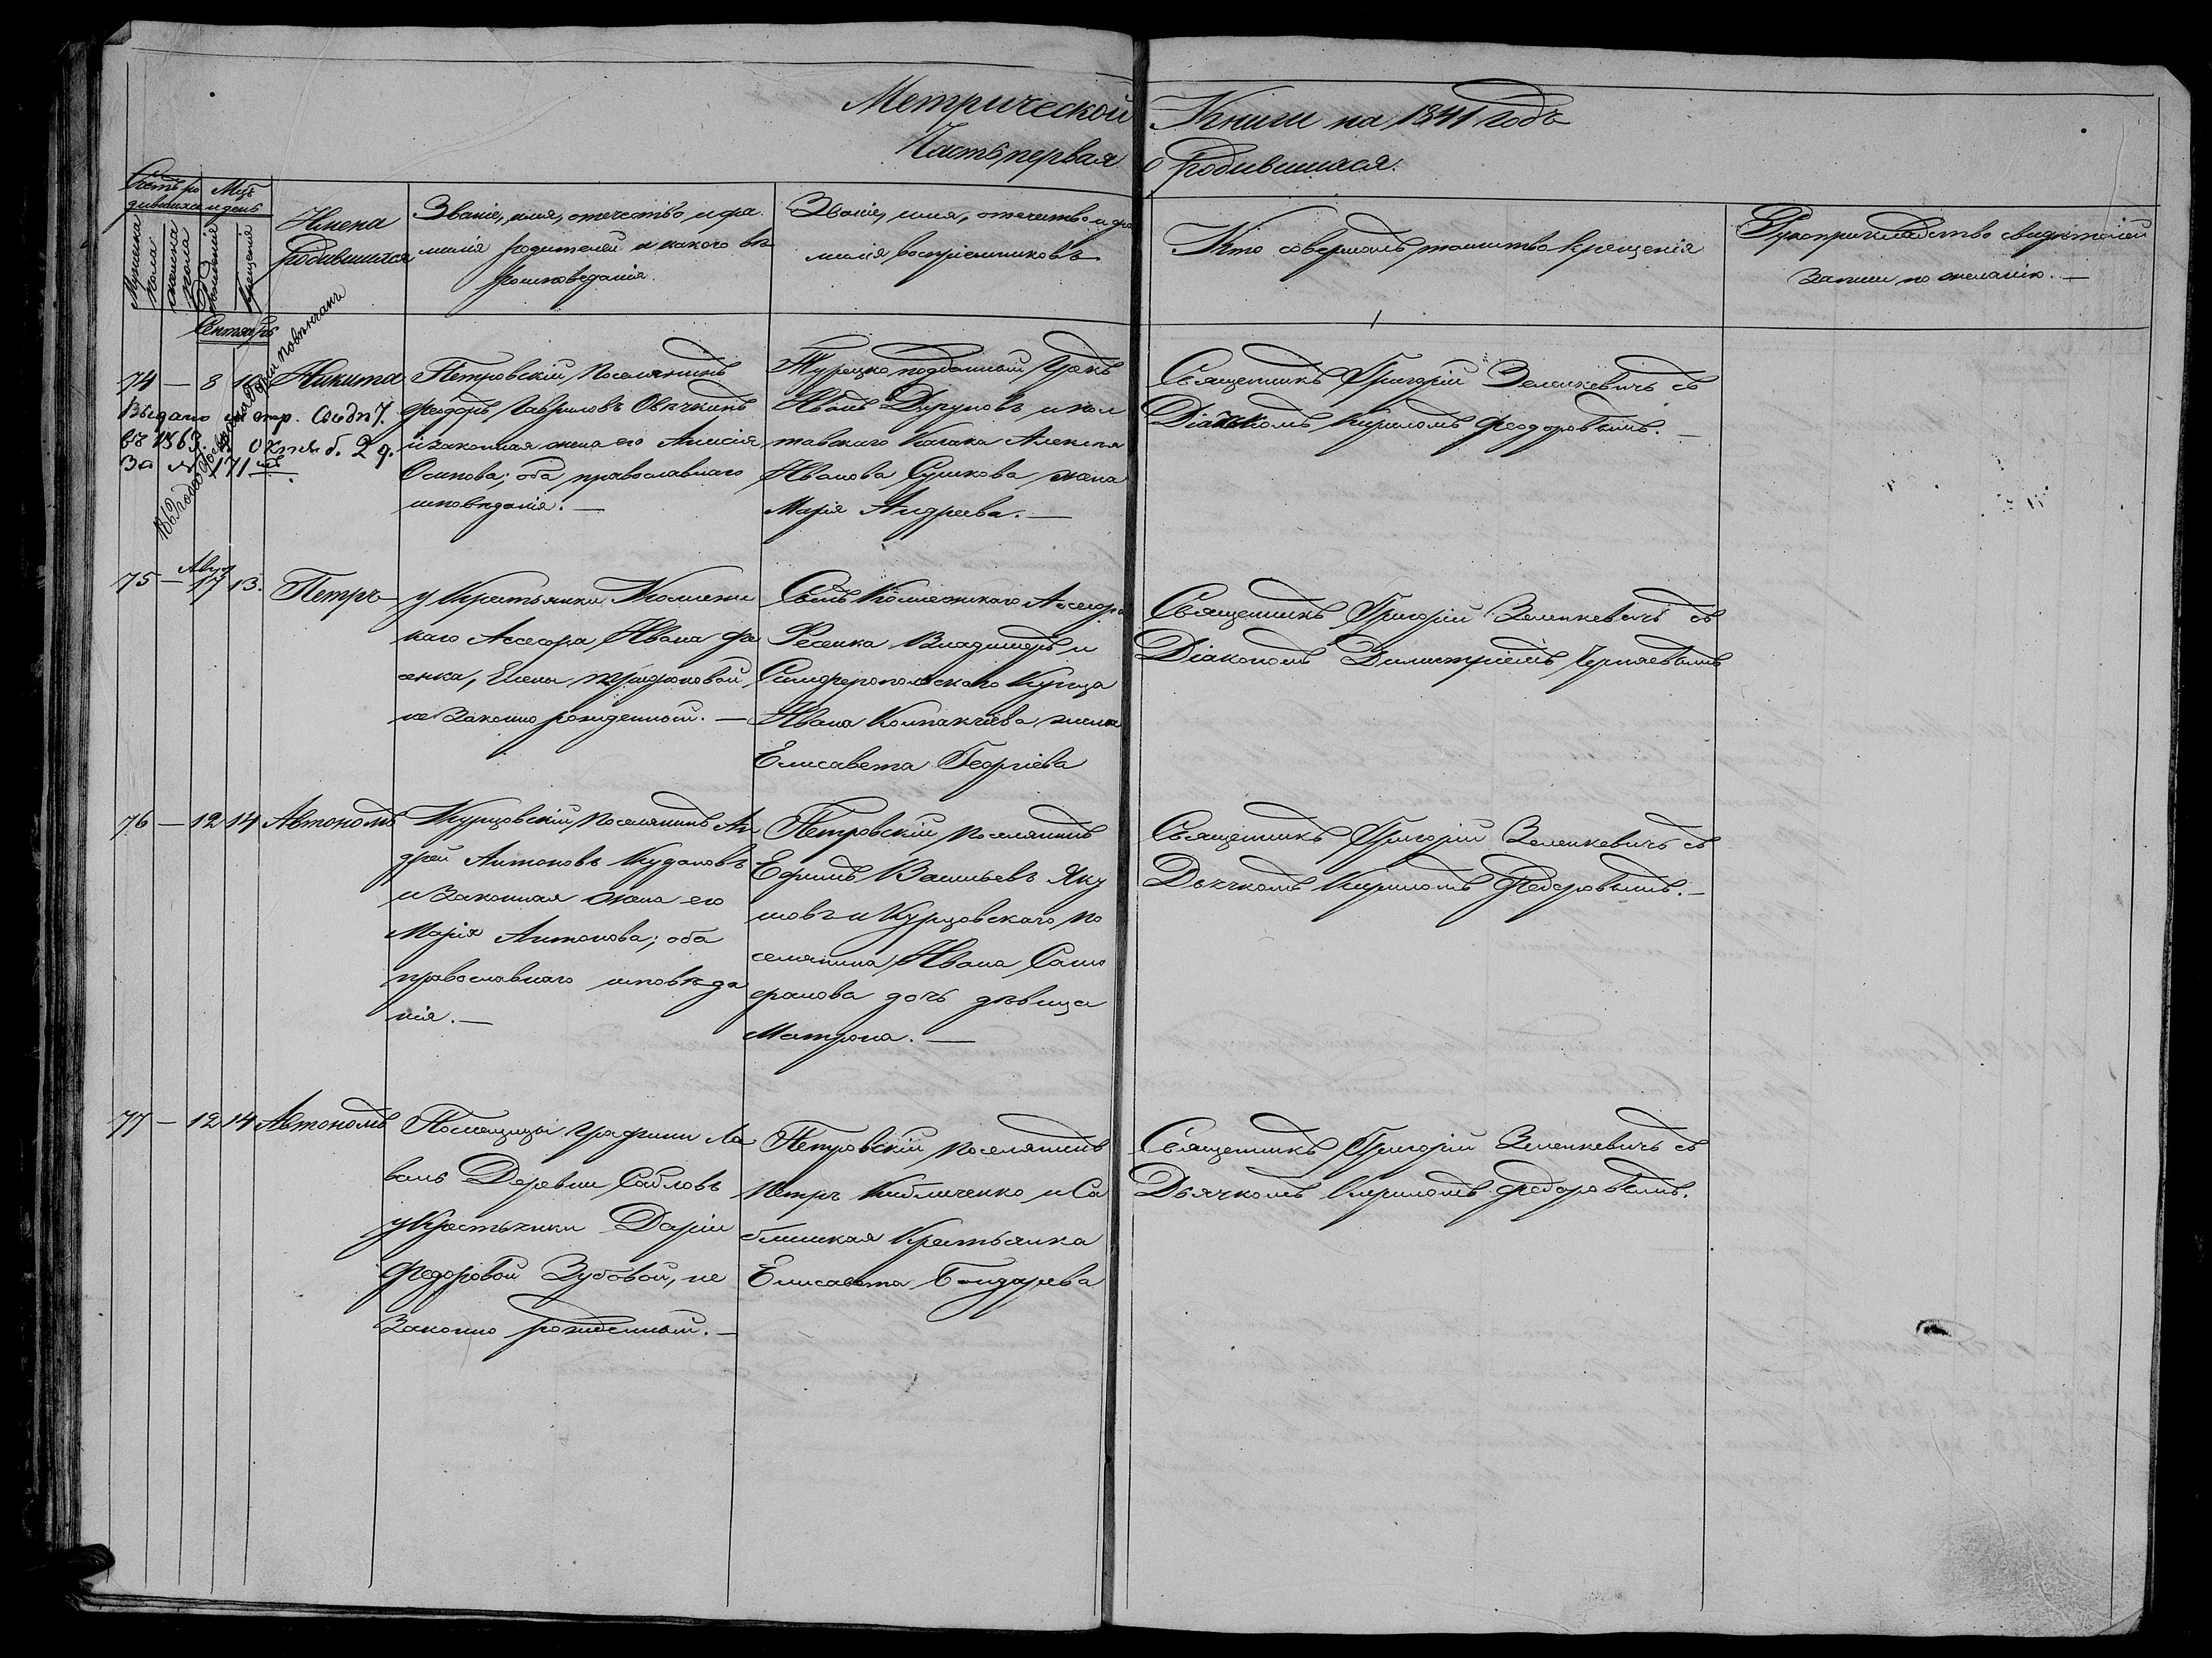 Метрической Книги на 1841 годъ
Часть первая о Родившихся.
Счетъ ро
дившихся
Мцъ
и день
Мужеска
пола
женска
пола
рожденія
крещенія
Имена
Родившихся
Званіе, имя, отечество и фа
милія родителей и какого вѣ
роисповеданія.
Званіе, имя, отечество и фа
милія воспріемниковъ
Кто совершалъ таинство крещенія
Рукоприкладство свидѣтелей
записи по желанію. —
Сентябрь
74 — 8
Никита
Петровскій Поселянинъ
Феодоръ Гавриловъ Овѣчкинъ
и законная жена его Анисія
Осипова; оба православнаго
исповѣданія. —
Турецко подданный Грекъ
Иванъ и пол
тавскаго Казака Алексѣя
Иванова Сушкова жена
Марія Андреева. —
Священникъ Григорій Зеленкевичъ съ
Діачкомъ Кириломъ Феодоровымъ. —
Выдано метр.
въ 1863 Октяб. 2 д.
За № 171
повѣнчанъ
75 — Авгу
17 13.
Петръ
у Крестьянки Коллежс
каго Ассесора Ивана Фе
сенка, Елены
не законно рожденный. —
Сынъ Коллежскаго Ассесора
Фесенка Владимеръ и
Симферопольскаго Купца
Ивана Колпакчіева жена
Елисавета Георгіева
Священникъ Григорій Зеленкевичъ съ
Діакономъ Димитріемъ Черняевымъ
76 — 12 14 Автономъ
Курцовскій Поселянинъ Ан
дрей Антоновъ Кудановъ
и законная жена его
Марія Антонова; оба
православнаго исповѣда
нія. —
Петровскій поселянинъ
Ефимъ Васильевъ Яку
шовъ и Курцовскаго по
селянина Ивана Сало
дочь дѣвица
Матрона. —
Священникъ Григорій Зеленкевичъ съ
Дьячкомъ Кириломъ Федоровымъ. —
77 — 12 14 Автономъ
Помещицы Графини Ла
валь Деревни Сабловъ
у Крестьянки Даріи
Федоровой Зубовой, не
законно рожденный. —
Петровскій поселянинъ
Петръ Кибличенко и Са
блинская Крестьянка
Елисавета Бондарева
Священникъ Григорій Зеленкевичъ съ
Дьячкомъ Кириломъ Федоровымъ.